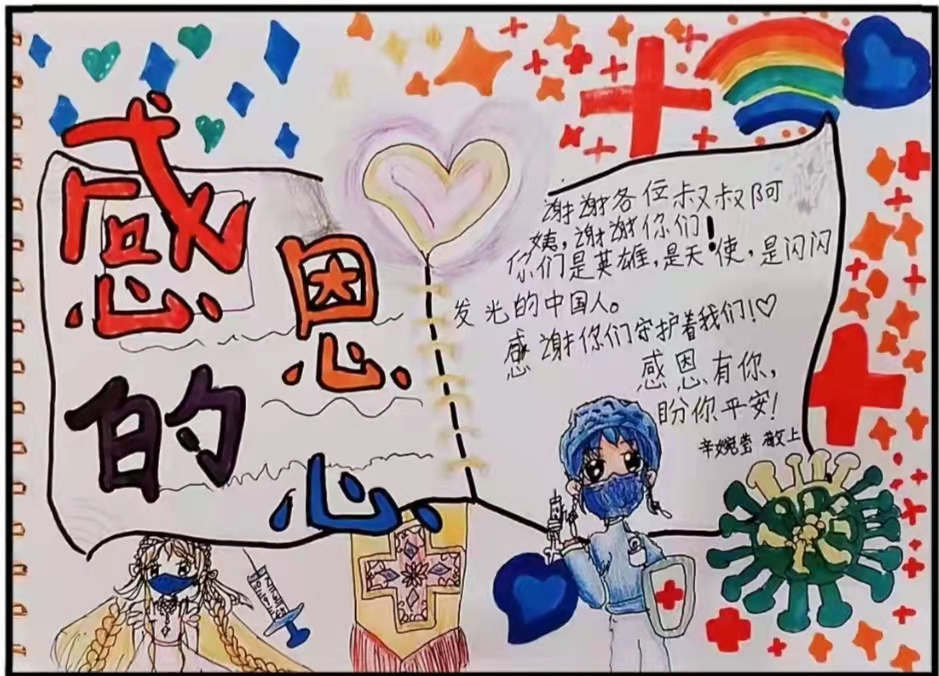 感恩
的心
谢谢各位叔叔阿
姨，谢谢你们！
你们是英雄，是天使，是闪闪
发光的中国人。
感谢你们守护着我们！♡
感恩有你，
盼你平安！
辛婉莹 敬上